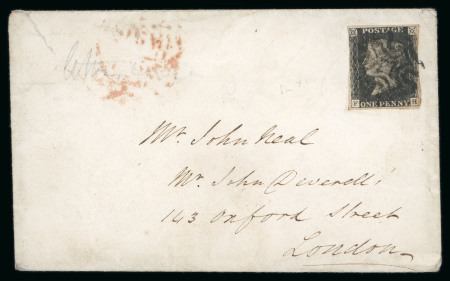 POSTAGE
ONE PENNY
Mr. John Neal
Mr. John Deverell's
143 Oxford Street
London